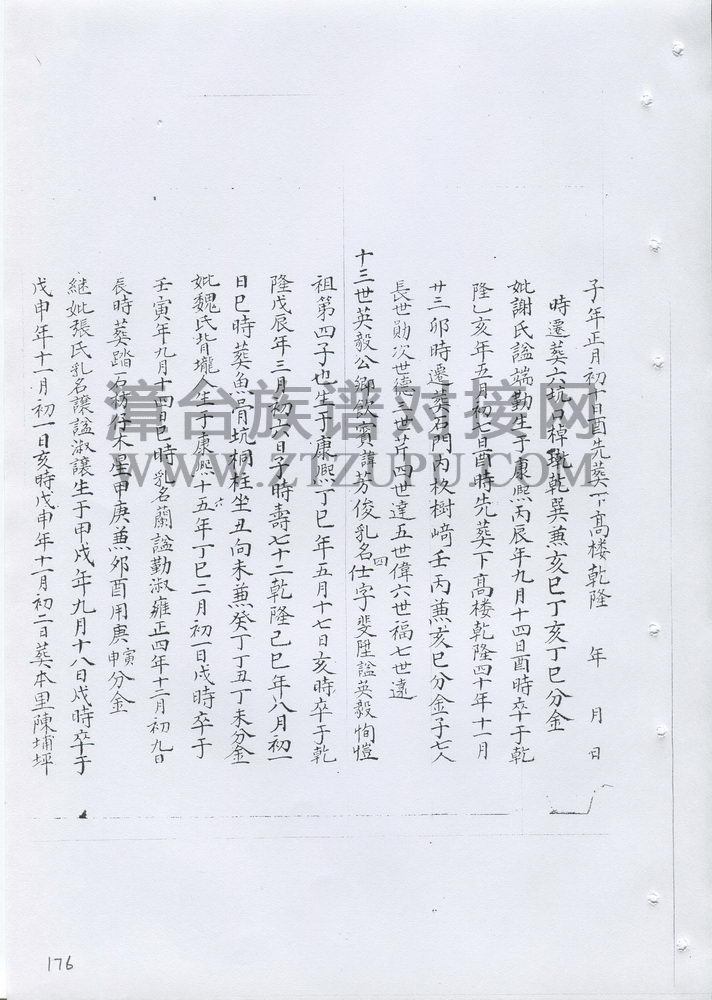 子年正月初十日酉先葬下高楼乾隆 年 月 日
時遷葬六坑口棹
乾巽兼亥巳丁亥丁巳分金
妣謝氏諡端勤生于康熙丙辰年九月十四日酉時卒于乾
隆乙亥年五月初七日酉時先葬下高楼乾隆四十年十一月
廿三卯時遷葬石門内杦樹崎壬丙兼亥巳分金子七人
長世勛次世德三世芹四世達五世偉六世福七世遠
十三世英毅公鄉飲賓諱芳俊乳名仕四字斐陞諡英毅恂愷
祖第四子也生于康熙丁巳年五月十七日亥時卒于乾
隆戊辰年三月初六日子時壽七十二乾隆己巳年八月初一
日巳時葬魚骨坑桐柱坐丑向未兼癸丁丁丑丁未分金
妣魏氏背壠人生于康熙十五六年丁巳二月初一日戌時卒于
壬寅年九月十四日巳時乳名蘭諡勤淑雍正四年十二月初九日
辰時葬踏石
仔木星甲庚兼卯酉用庚寅申分金
継妣張氏乳名讓諡淑讓生于甲戌年九月十八日戌時卒于
戊申年十一月初一日亥時戊申年十一月初二日葬本里陳埔坪
漳台族谱对接网
WWW.ZTZUPU.COM
176